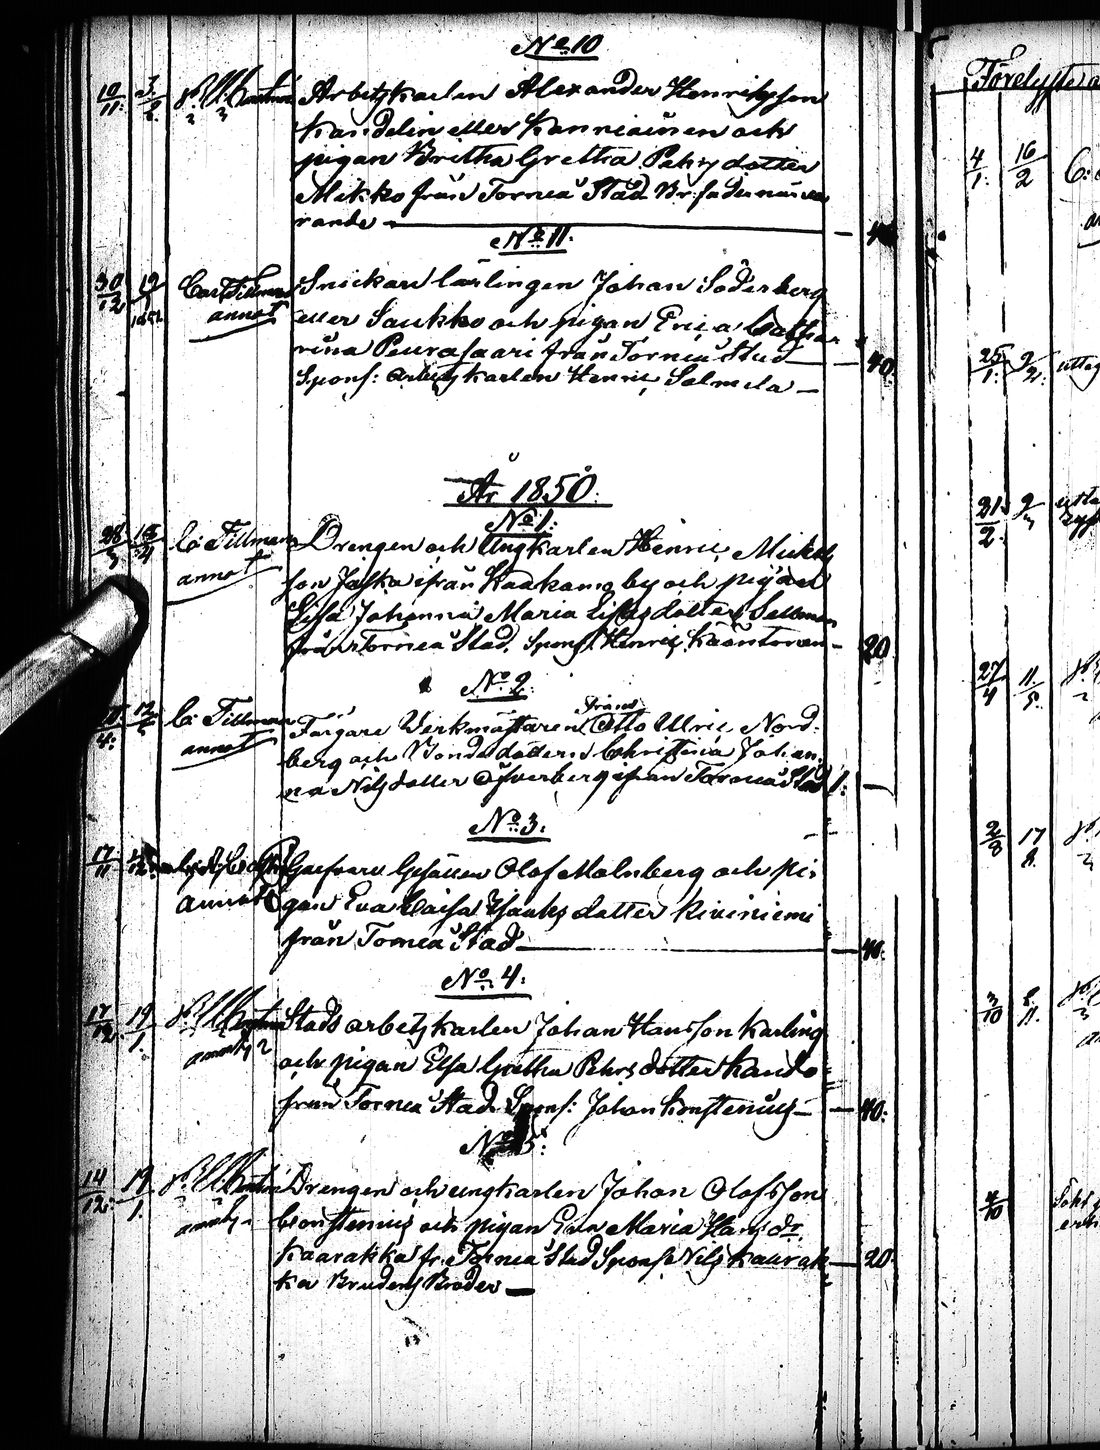 No 10
10/11 3/2 Arbetskarlen Alexander Henriksson
Kandelin eller Kanniainen och
pigan Britha Gretha Pehrsdotter
Mikko från Torneå Stad Br: fader närva
rande — 40
No 11.
30/12 19/1 1851 Carl Tillman Snickare lärlingen Johan Söderberg
annot eller Saukko och pigan Erica Cathar
rina Peurasaari från Torneå Stad — 40.
Spons: arbetskarlen Henric Salmela —
År 1850.
No 1:
C: Tillman Drengen och Ungkarlen Henric Mickels
annot son Jaska ifrån Kaakamo by och pigan
Lisa Johanna Maria Lisasdotter Sellman
från Torneå Stad. Spons: Henric — 20
No 2.
C: Tillman Färgare Verkmästaren Frans Otto Ulric Nord:
annot berg och Bondedottern Christina Johan
na Nilsdotter Öfverberg ifrån Torneå Stad 1: —
No 3.
17/11 Garfvare Gesällen Olof Malmberg och pi:
annot gan Eva Caisa Isaksdotter Kiviniemi
från Torneå Stad — 40.
No 4:
17/12 19/1. Stads arbetskarlen Johan Hansson Karling
och pigan Elsa Gretha Pehrsdotter Kando
från Torneå Stad. Spons: Johan Konstenius — 40:
No 5:
14/12 19/1. Drengen och ungkarlen Johan Olofsson
Constenius och pigan Eva Maria Hansdr.
Kaarakka fr. Torneå Stad Spons: Nils Kaarak — 20
ka Brudens Broder —
Förelyste
4/1: 16/2
25/1: 9/2:
21/2
27/4 11/5
2/8 17/8.
3/10